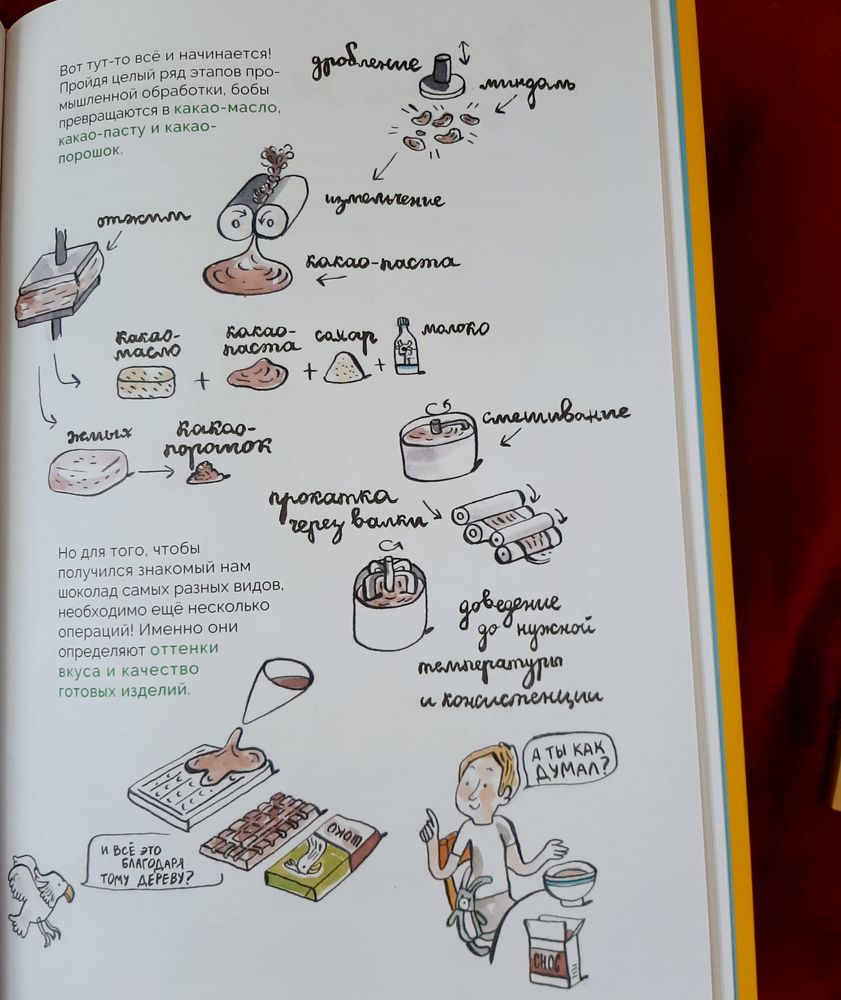 Вот тут-то всё и начинается!
Пройдя целый ряд этапов про-
мышленной обработки, бобы
превращаются в какао-масло,
какао-пасту и какао-
порошок.
дробление
миндаль
измельчение
отжим
какао-паста
какао-
масло
+
какао-
паста
+
сахар
+
молоко
жмых
какао-
порошок
смешивание
прокатка
через валки
Но для того, чтобы
получился знакомый нам
шоколад самых разных видов,
необходимо ещё несколько
операций! Именно они
определяют оттенки
вкуса и качество
готовых изделий.
доведение
до нужной
температуры
и консистенции
А ТЫ КАК
ДУМАЛ?
И ВСЁ ЭТО
БЛАГОДАРЯ
ТОМУ ДЕРЕВУ?
ШОКО
CHOC